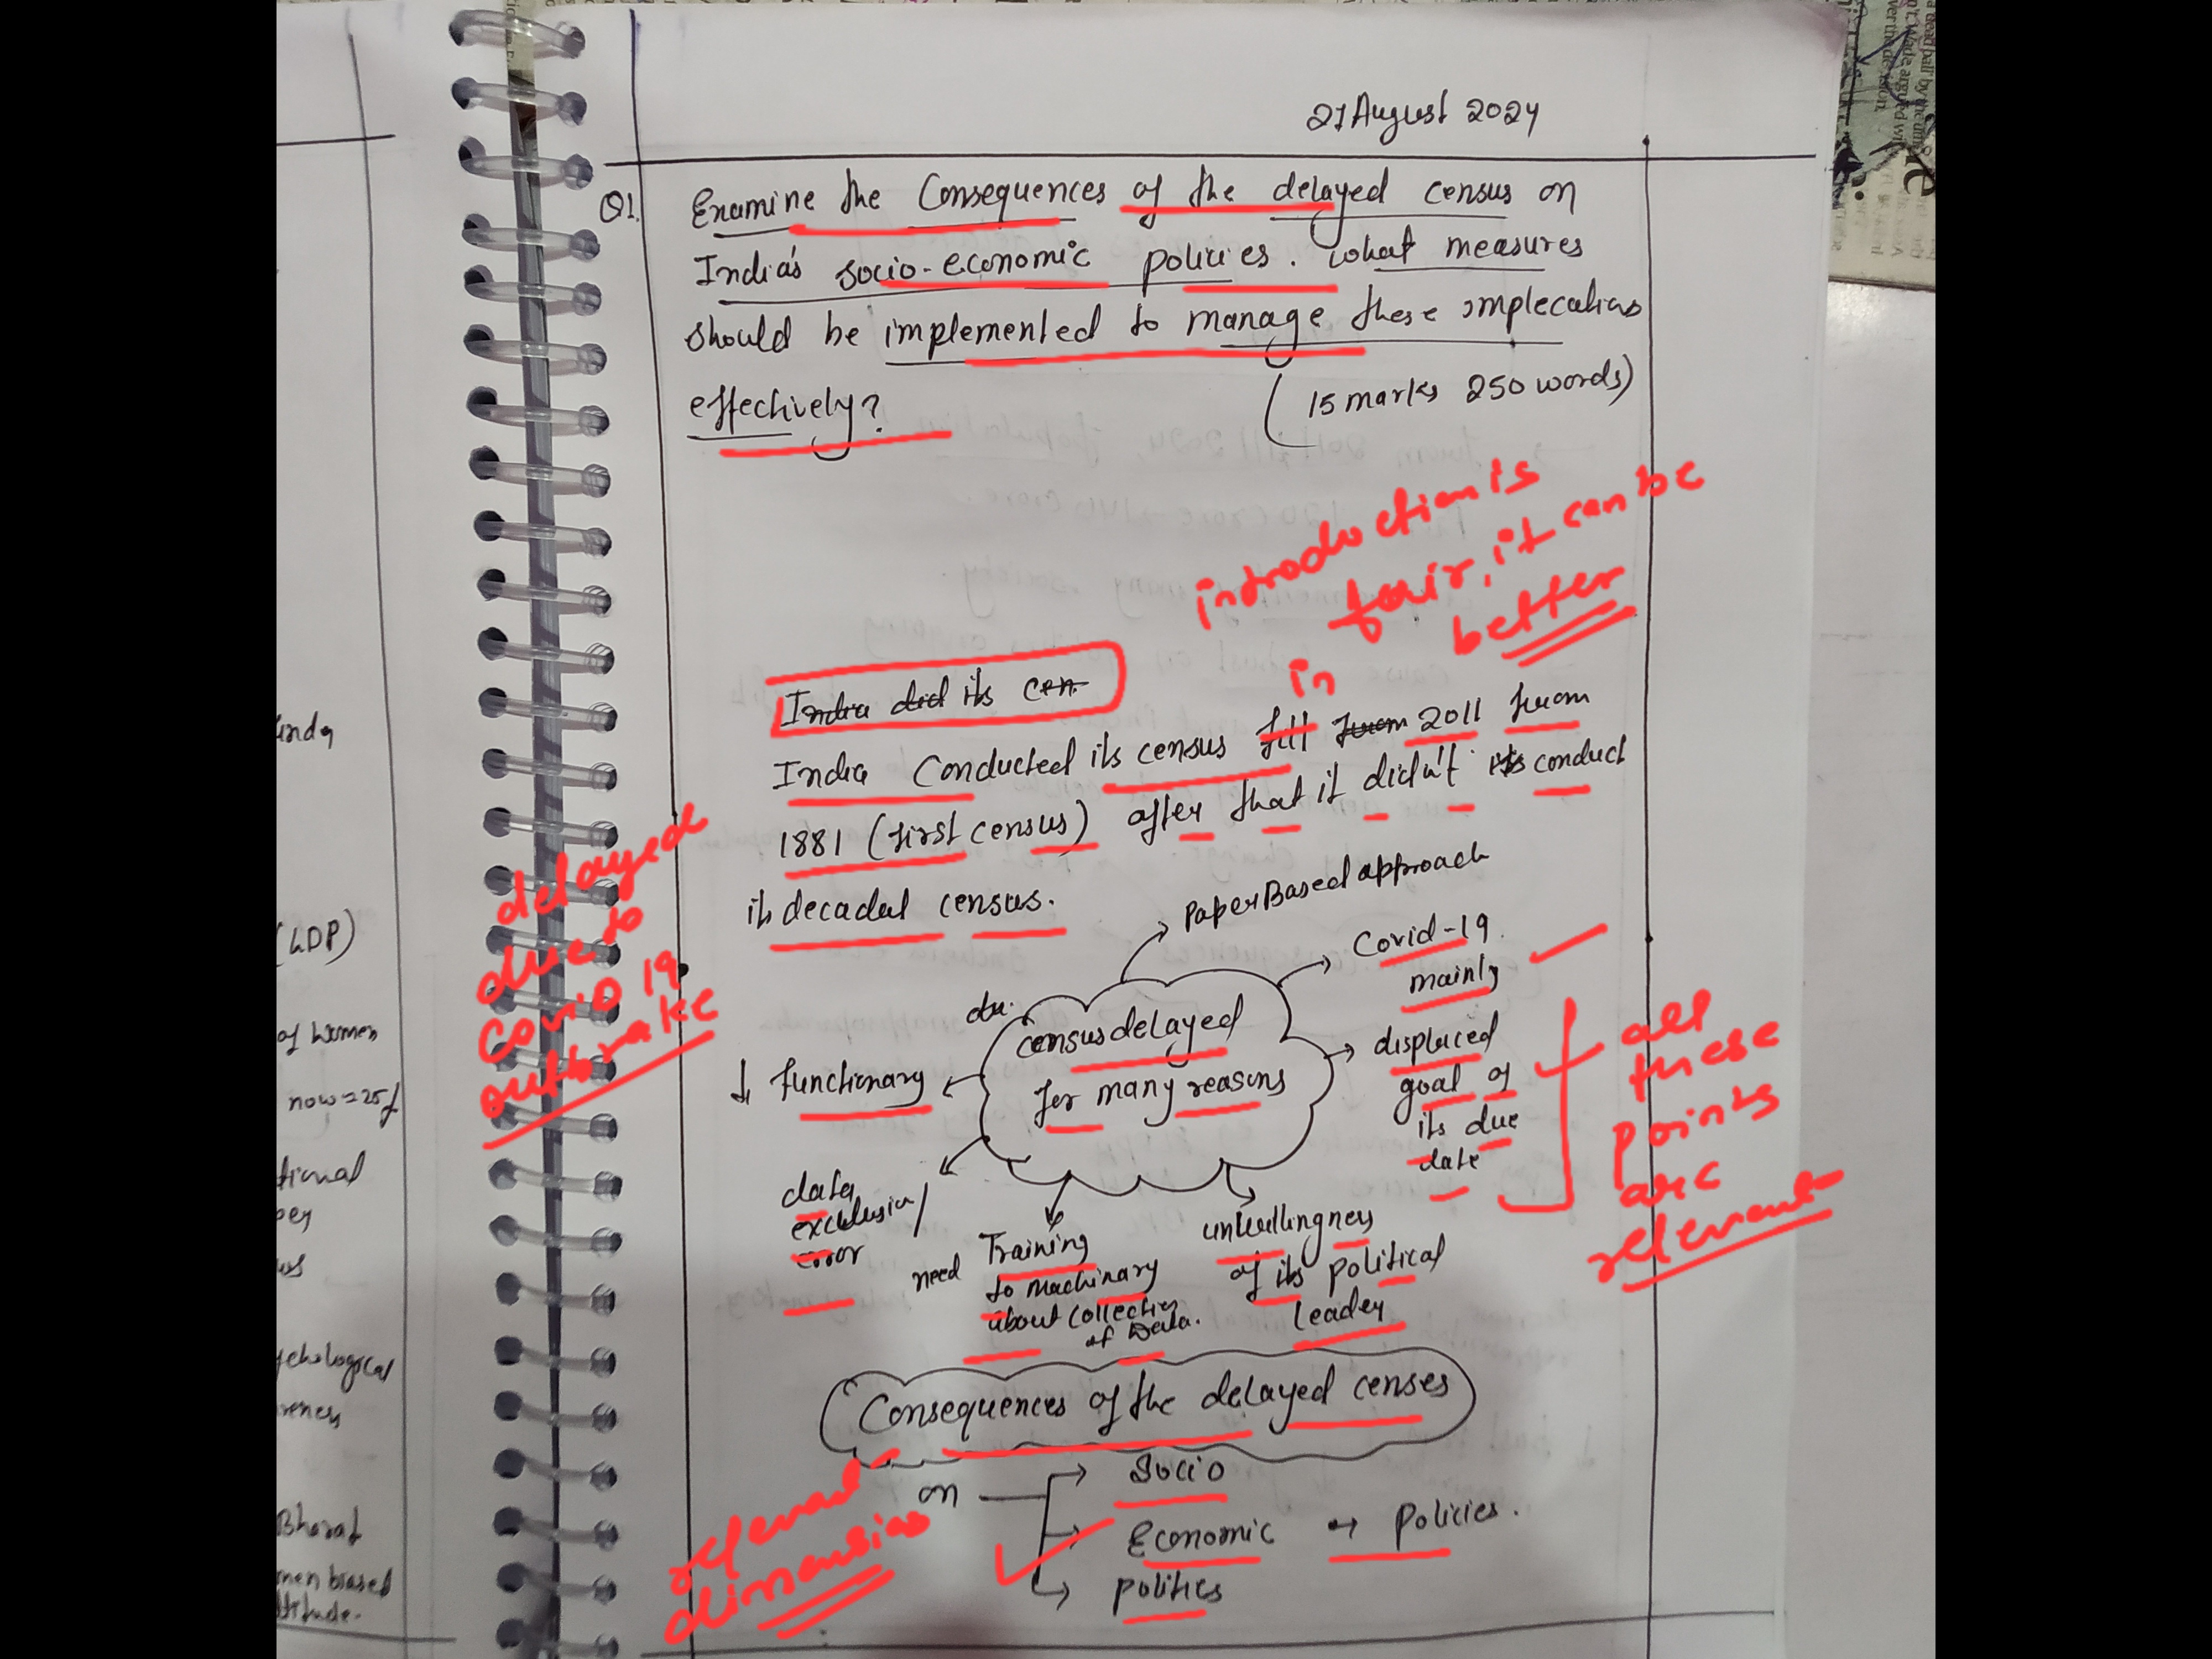 27 August 2024
Q1. Examine the Consequences of the delayed census on
India's socio-economic policies. what measures
should be implemented to manage these implecations
effectively?
(15 marks 250 words)
introduction is
fair, it can be
better
India did its cen
in
India Conducted its census till from 2011 from
1881 (first census) after that it didn't its conduct
its decadal census.
delayed
due to
Covid 19
outbrake
Paper Based approach
Covid-19.
mainly
du.
census delayed
for many reasons
displaced
goal of
its due
date
all
these
points
are
relevant
↓ functionary
data
exclusion/
error
need Training
to machinary
about collection
of Data.
unwillingness
of its political
leader
Consequences of the delayed censes
on
Socio
Economic → policies.
politics
relevant
dimensions
(LDP)
of women
now = 25%
tional
ychological
reness
Bharat
men biased
ttitude.